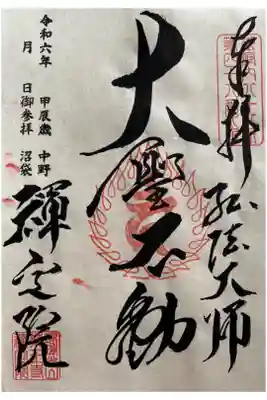 奉拝 弘法大師
大聖不動
中野
沼袋
禅定院
甲辰歳
日御参拝
令和六年
月